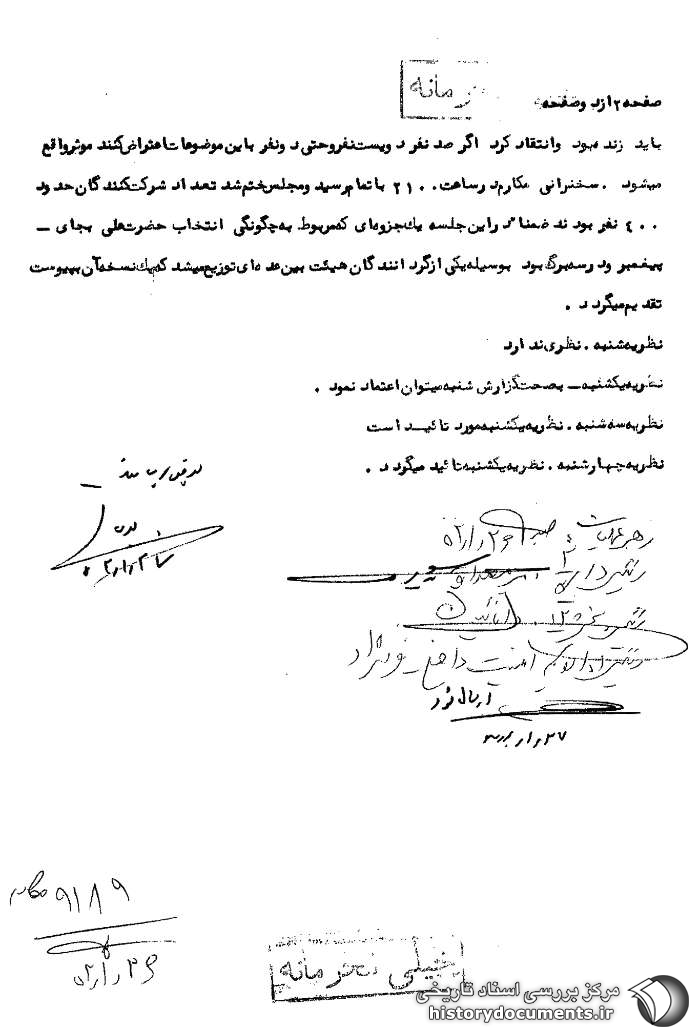 محرمانه
صفحه ۲ از دو صفحه
باید زنده بود و انتقاد کرد اگر صد نفر دویست نفر و حتی دو نفر با این موضوعات اعتراض کنند موثر واقع
میشود . سخنرانی مکارم در ساعت ۲۱۰۰ با تمام رسید و مجلس ختم شد تعداد شرکت کنندگان حدود
۴۰۰ نفر بودند ضمناً در این جلسه یک جزوه ای که مربوط به چگونگی انتخاب حضرت علی بجای –
پیغمبر ودر سه برگ بود بوسیله یکی از گردانندگان هیئت بین عده ای توزیع میشد که یک نسخه آن بپیوست
تقدیم میگردد .
نظریه شنبه . نظری ندارد
نظریه یکشنبه – بصحت گزارش شنبه میتوان اعتماد نمود .
نظریه سه شنبه . نظریه یکشنبه مورد تائید است
نظریه چهارشنبه . نظریه یکشنبه تائید میگردد .
رهبر عملیات
رئیس دایره
رئیس بخش ۱۲
امنیت داخلی
۹۱۸۹
خیلی محرمانه
مرکز بررسی اسناد تاریخی
historydocuments.ir